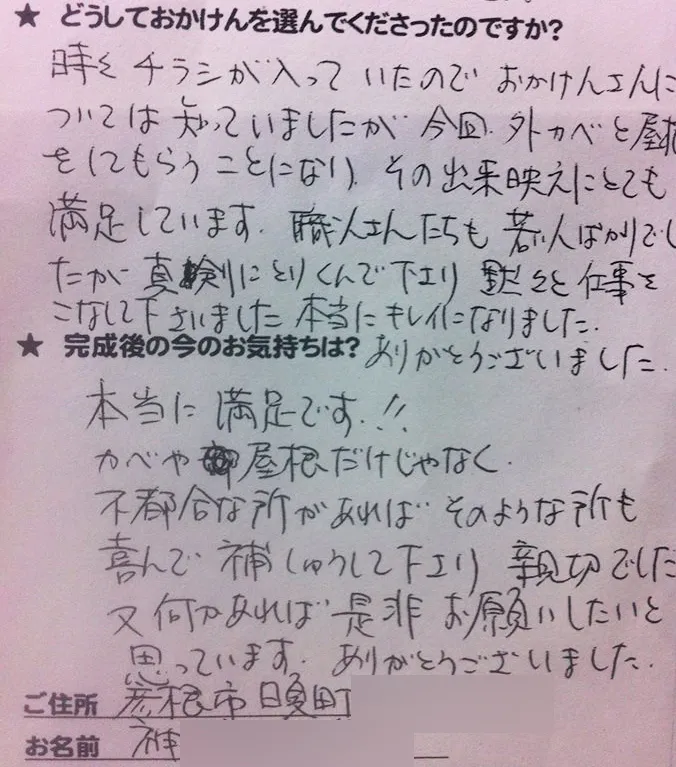 ★ どうしておかけんを選んでくださったのですか?
時々 チラシが入って いたので おかけんさんに
ついては 知っていましたが 今回、外カベと屋根
をしてもらう ことになり、その出来映えにとても
満足しています。職人さんたちも 若い人ばかりでし
たが 真剣にとりくんで下さり 黙々と仕事を
こなして下さいました 本当に キレイになりました。
★ 完成後の今のお気持ちは? ありがとうございました。
本当に 満足です。!!
カベや 屋根だけじゃなく、
不都合な所があれば そのような所も
喜んで 補しゅうして下さり 親切でした
又 何かあれば 是非 お願いしたいと
思っています。ありがとうございました。
ご住所 彦根市 日夏町
お名前 神